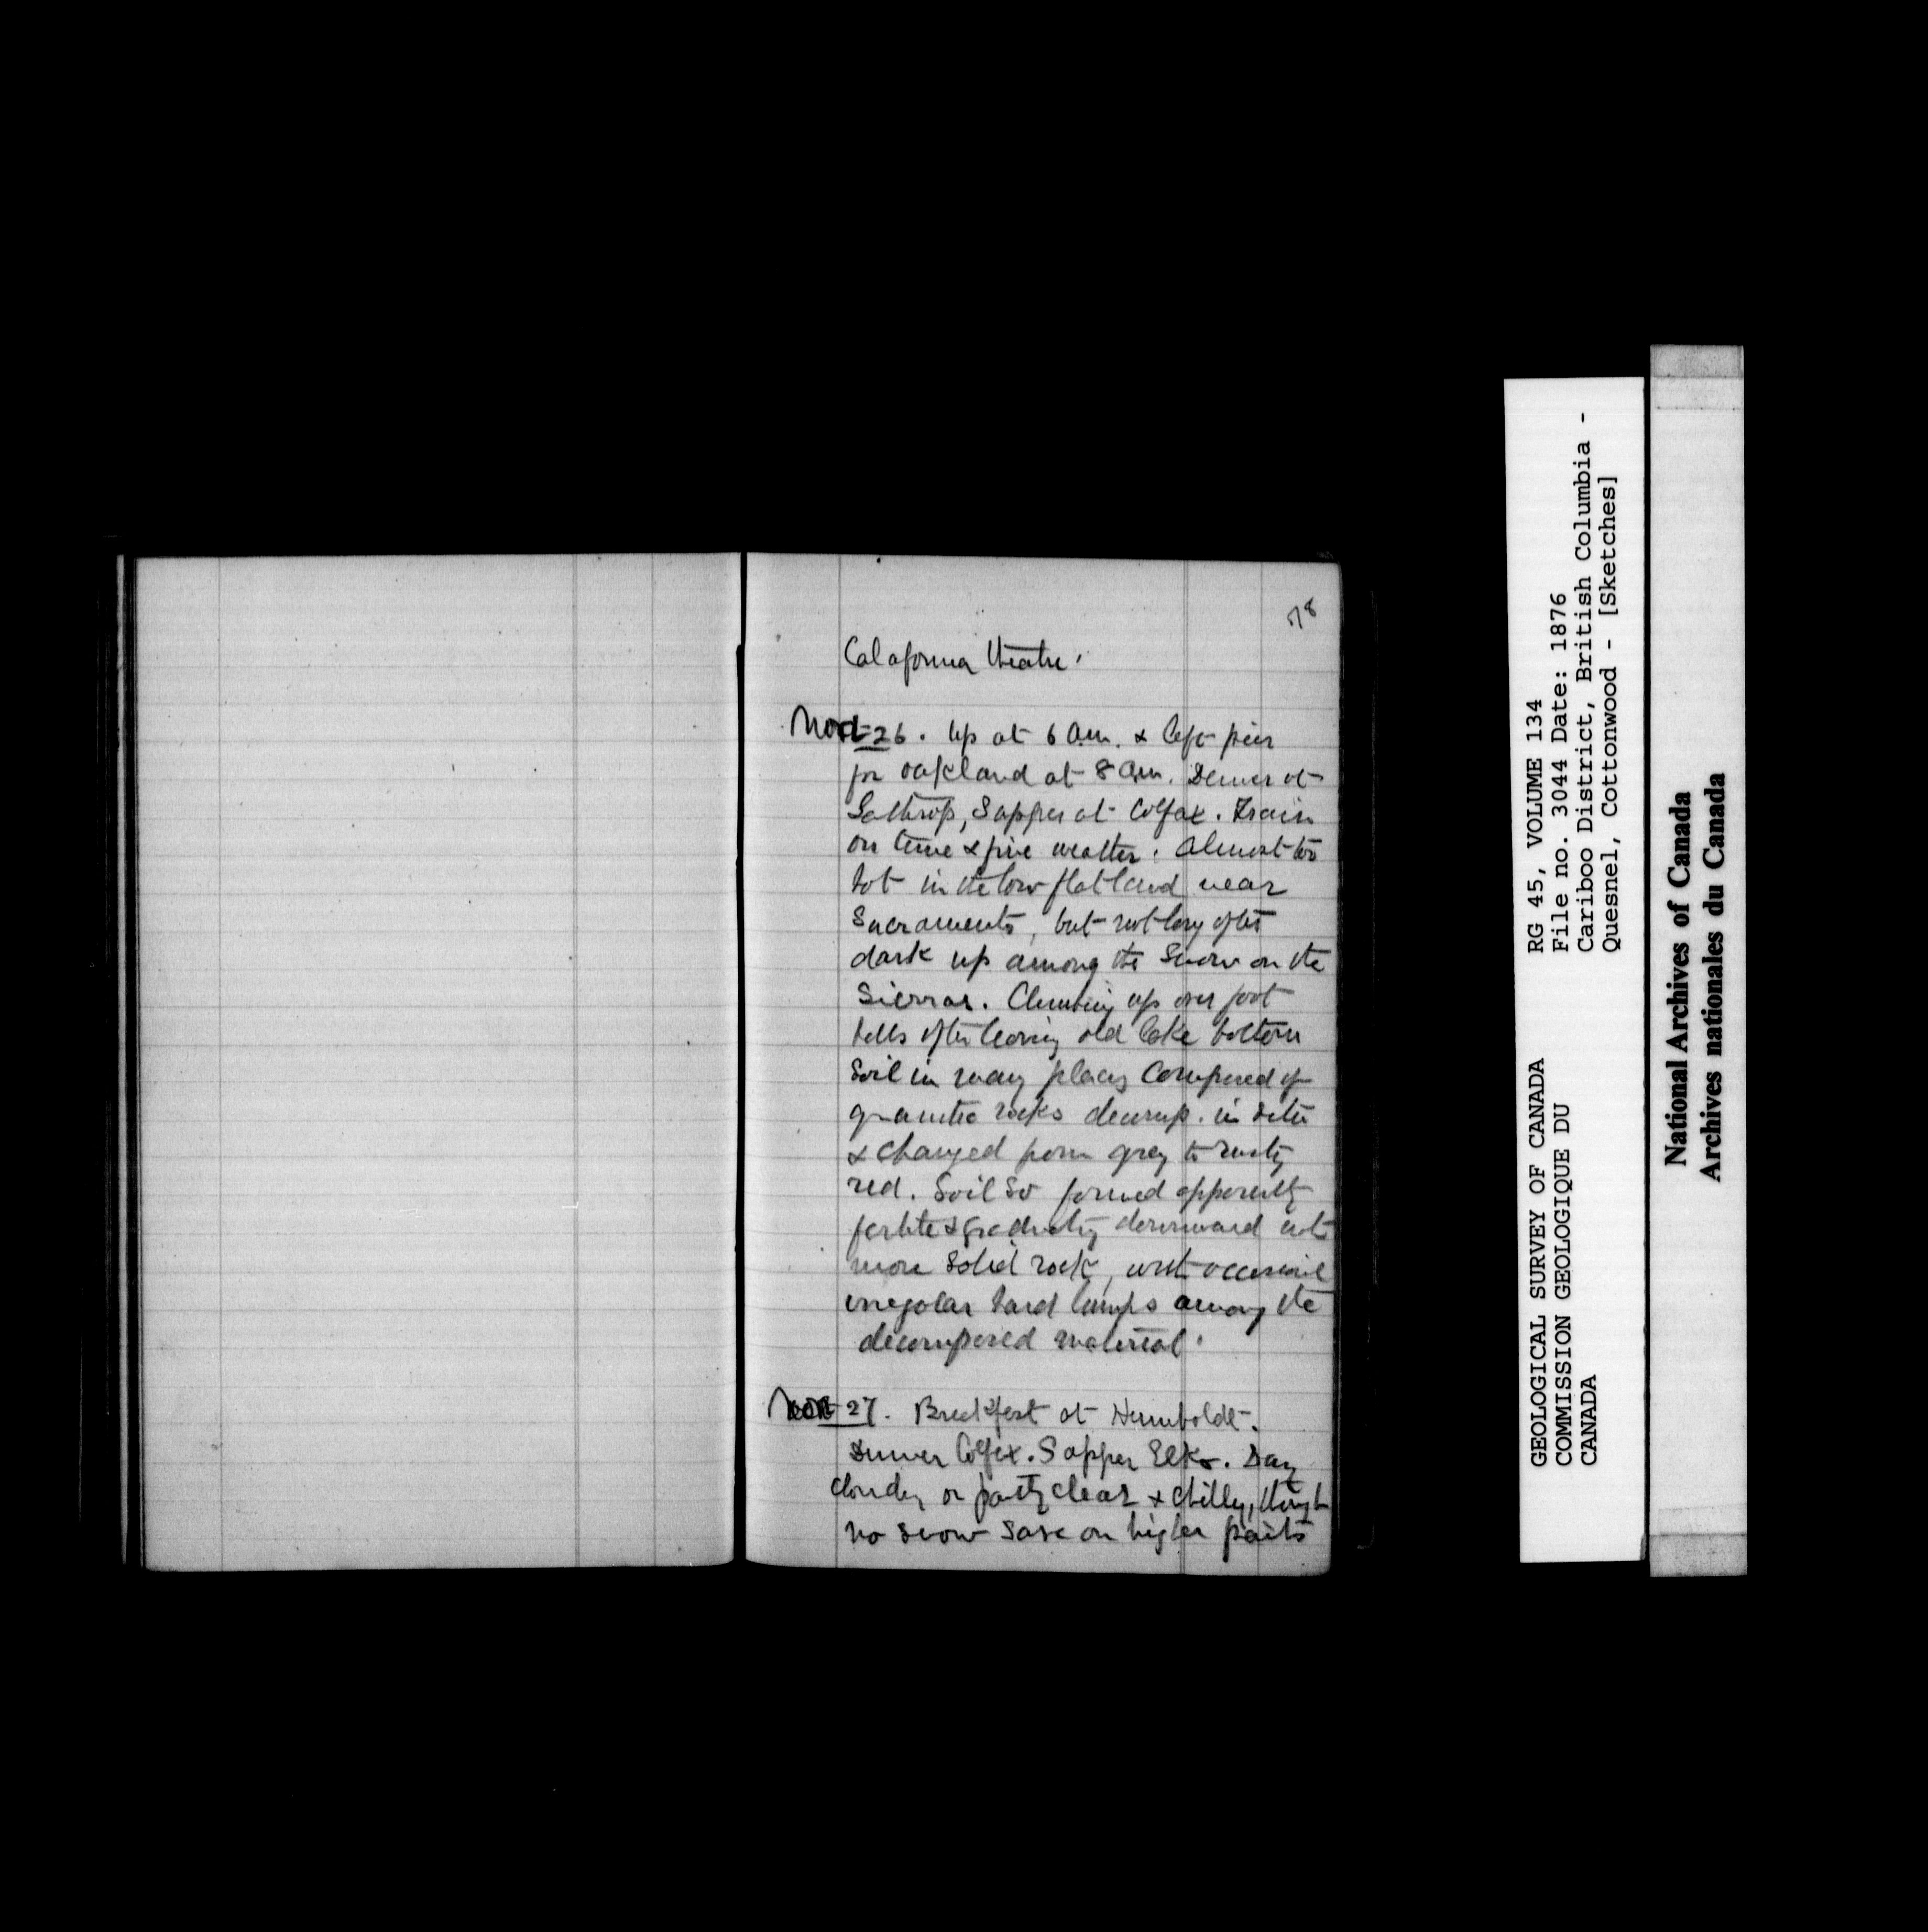 78
Calafornia theatre.
Nov 26. Up at 6 a.m. & left pier
for oakland at 8 am. Dinner at
Lathrop, Supper at Colfax. Train
on time & fine weather. Almost too
hot in the low flat land near
Sacramento, but not long after
dark up among the snow on the
Sierras. Climbing up over foot
hills after leaving old lake bottom
Soil in many places composed of
granitic rocks decomp. in situ
& changed from grey to rusty
red. Soil so formed apparently
fertile & graduating downward into
more solid rock, with occasional
irregular hard lumps among the
decomposed material.
Nov 27. Breakfast at Humboldt.
Dinner Colfax. Supper Elko. Day
cloudy or partly clear & chilly, though
no snow save on higher parts
GEOLOGICAL SURVEY OF CANADA
COMMISSION GEOLOGIQUE DU
CANADA
RG 45, VOLUME 134
File no. 3044 Date: 1876
Cariboo District, British Columbia -
Quesnel, Cottonwood - [Sketches]
National Archives of Canada
Archives nationales du Canada